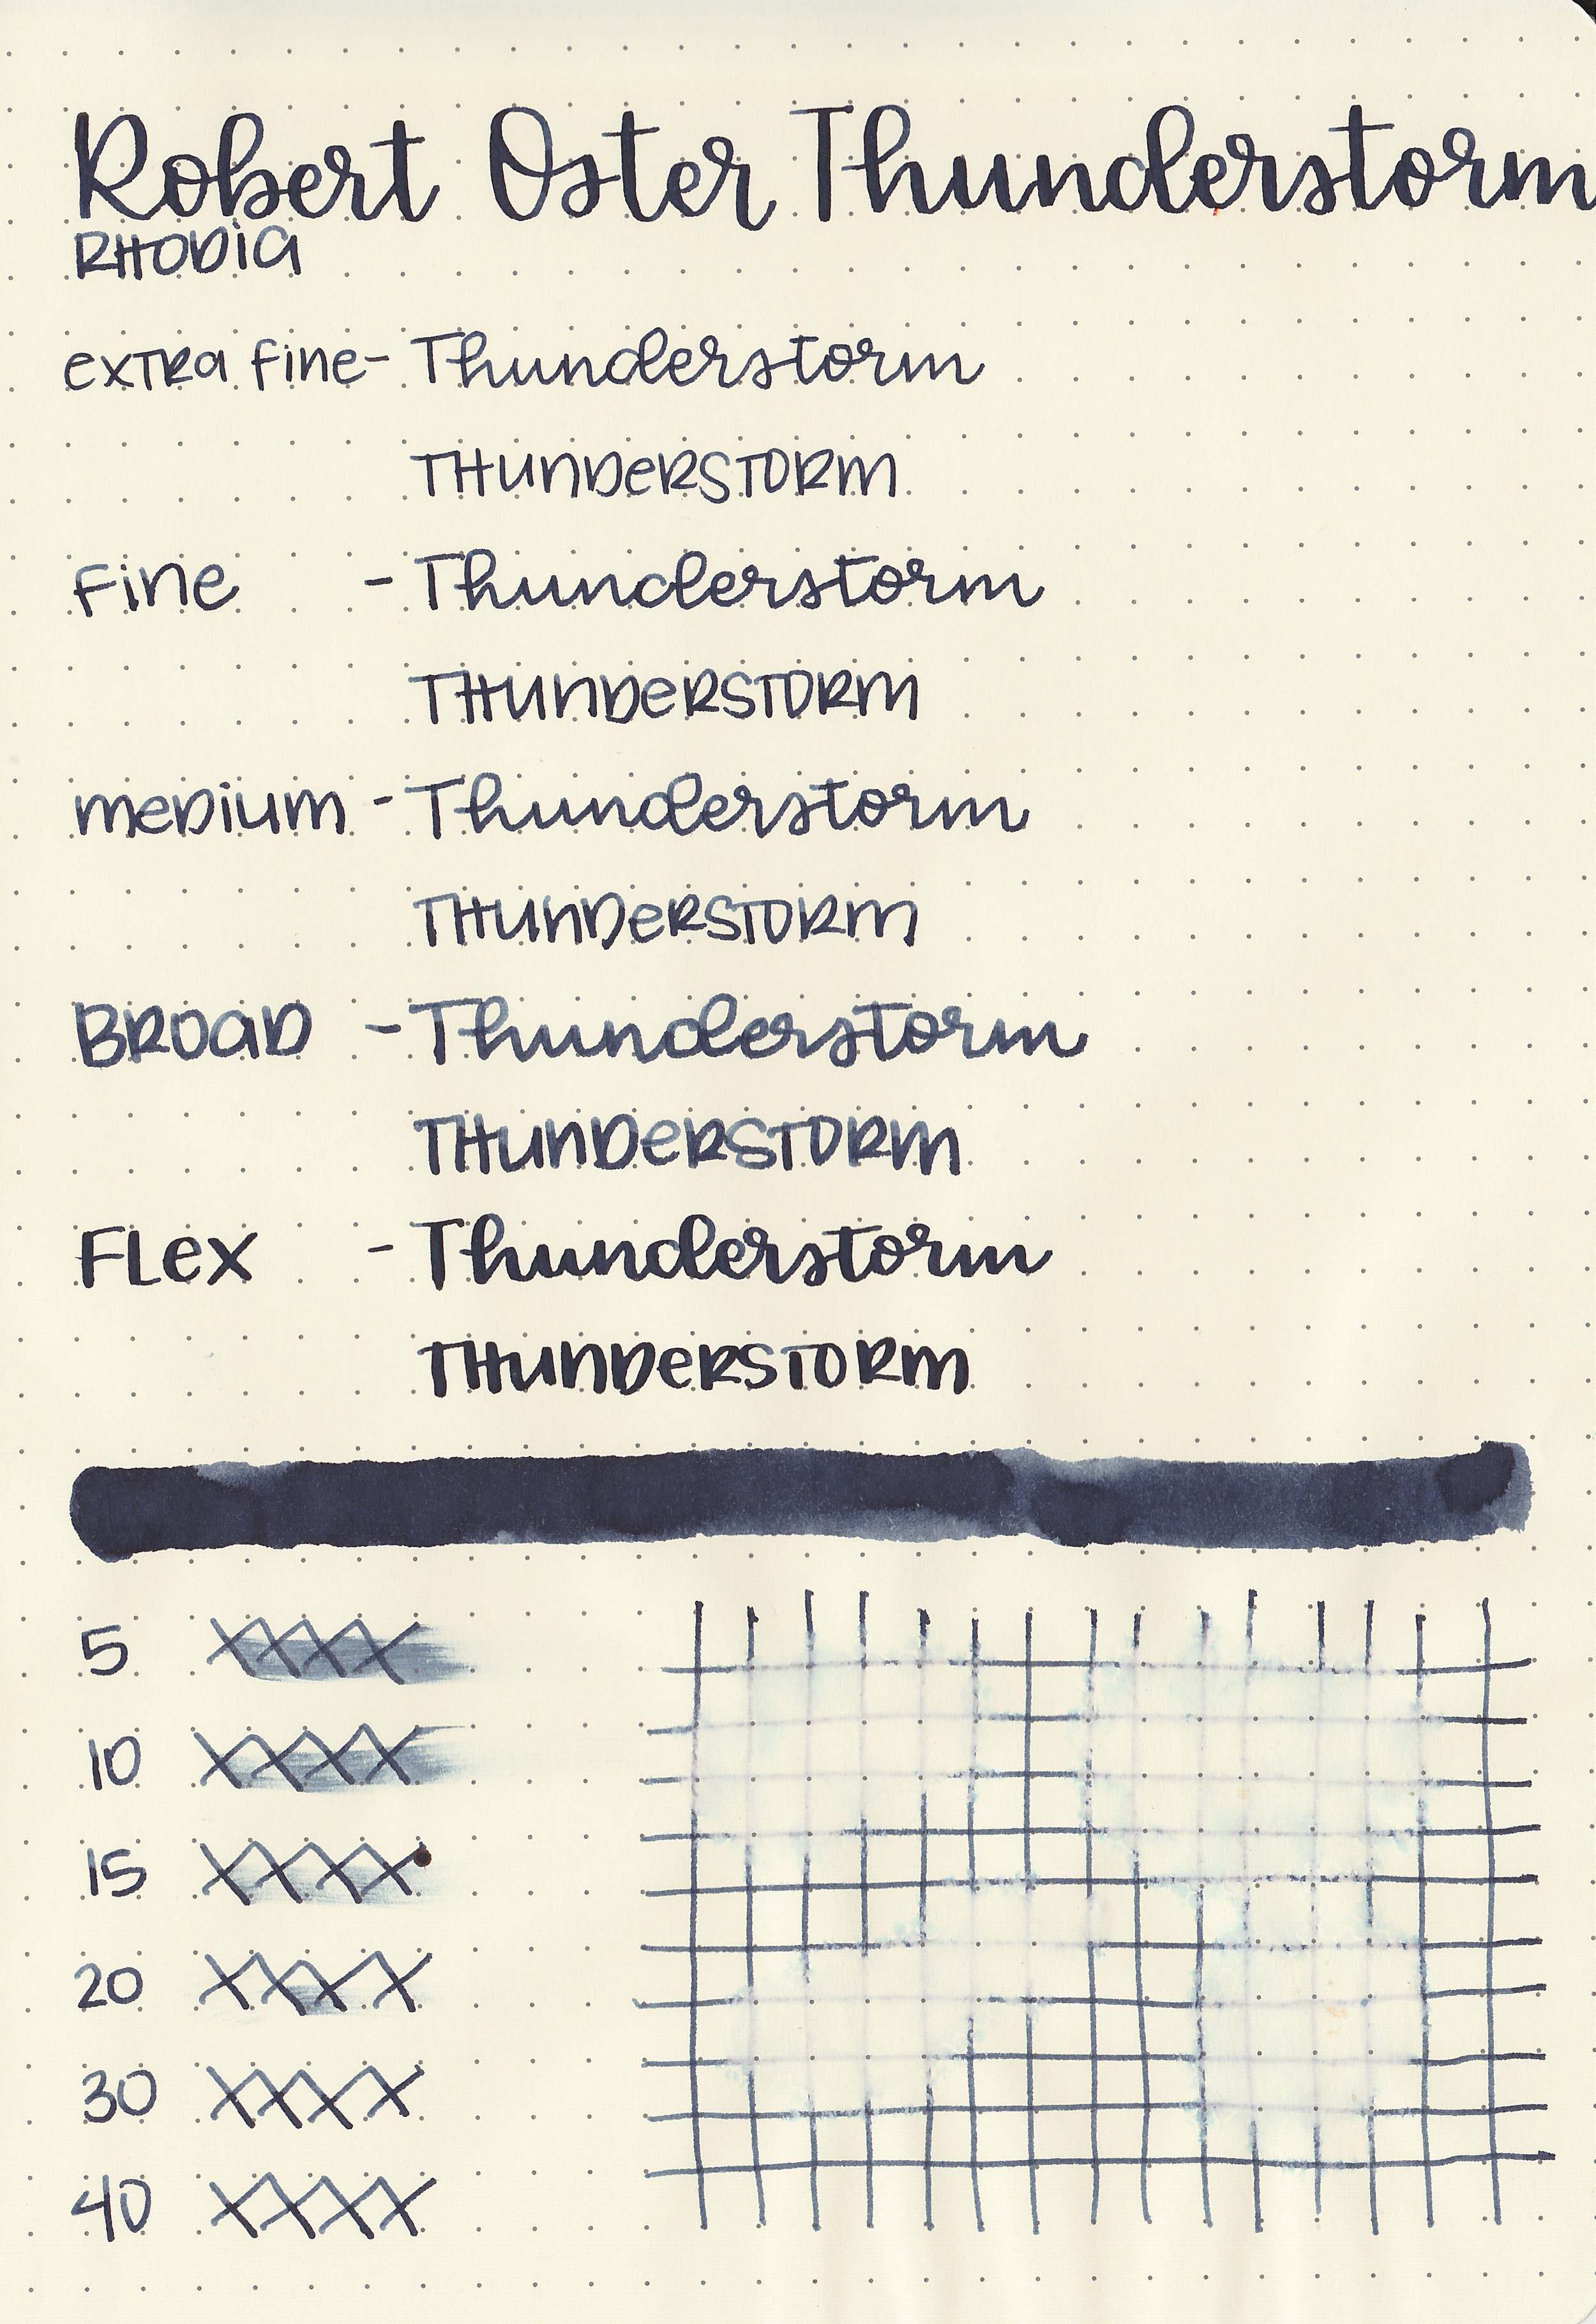 Robert Oster Thunderstorm
RHODIA
extra fine - Thunderstorm
THUNDERSTORM
Fine - Thunderstorm
THUNDERSTORM
medium - Thunderstorm
THUNDERSTORM
BROAD - Thunderstorm
THUNDERSTORM
FLex - Thunderstorm
THUNDERSTORM
5 XXXX
10 XXXX
15 XXXX
20 XXXX
30 XXXX
40 XXXX